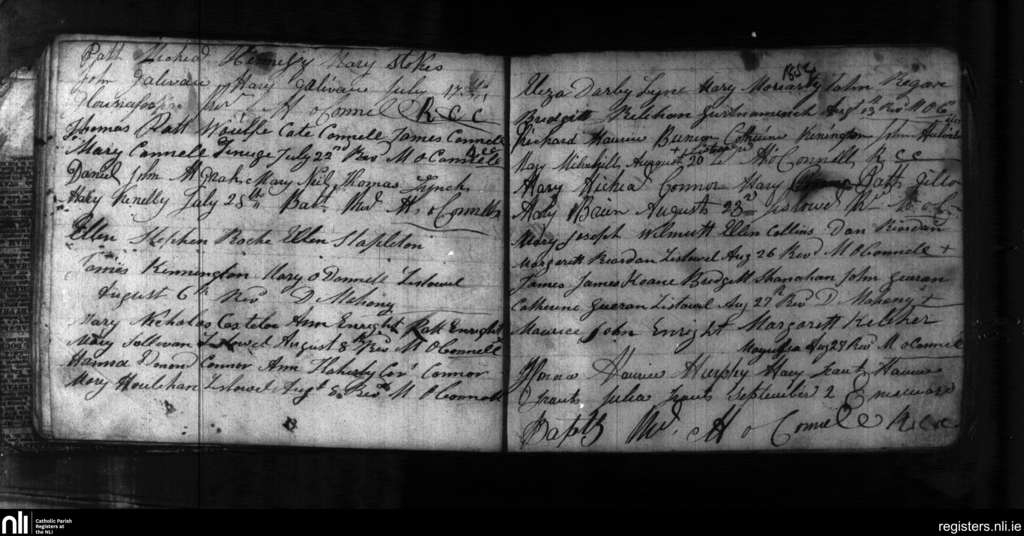 Patt Michd Hennessy Mary Stokes
John Galivane Mary Galivane July 17th
Revr M o Connel R C C
Thomas Patt Woulfe Cate Connell James Connell
Mary Connell July 22nd Rev M O Connell
Daniel John Mary Neil Thomas Lynch
Mary Kenelly July 28th Bapt Revd M o Connell
Ellen Stephen Roche Ellen Stapleton
James Kennington Mary O Donnell Listowel
August 6th Revd D Mahony
Mary Nicholas Costelow Ann Enright Patt Enright
Mary Sullivan Listowel August 8th Revd M O Connell
Hanna Edmond Connor Ann Flaherty Cors Connor
Mary Houlehan Listowel Augt 8 Revd M O Connell
1852
Eliza Darby Lyne Mary Moriarty John Regane
Bridgett Relehan Augt 13th Revd M O C
Richard Maurice Bunion Catherine Kennington John
May August 20th M O Connell R C C
Mary Michd Connor Mary Patt
Mary Brien August 23rd Listowel Revd M o C
Mary Joseph Wilmett Ellen Collins Dan Riordan
Margarett Reardan Listowel Aug 26 Revd M O Connell +
James James Keane Bridgett Shanahan John Gueran
Catherine Gueran Listowel Aug 27 Revd D Mahony +
Maurice John Enright Margarett Keleher
Aug 28 Revd M o Connell
Maurice Murphy Mary Frantz Maurice
Frantz Julia Frantz September 2
Baptz Revd M o Connell R C C
nli
Catholic Parish
Registers at
the NLI
registers.nli.ie